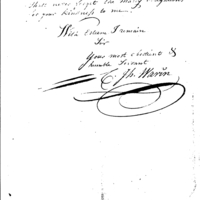 shall never forget the many
or your kindness to me.
With Esteem I remain
Sir
Your most obedient &
humble Servant
C. Th. Warin